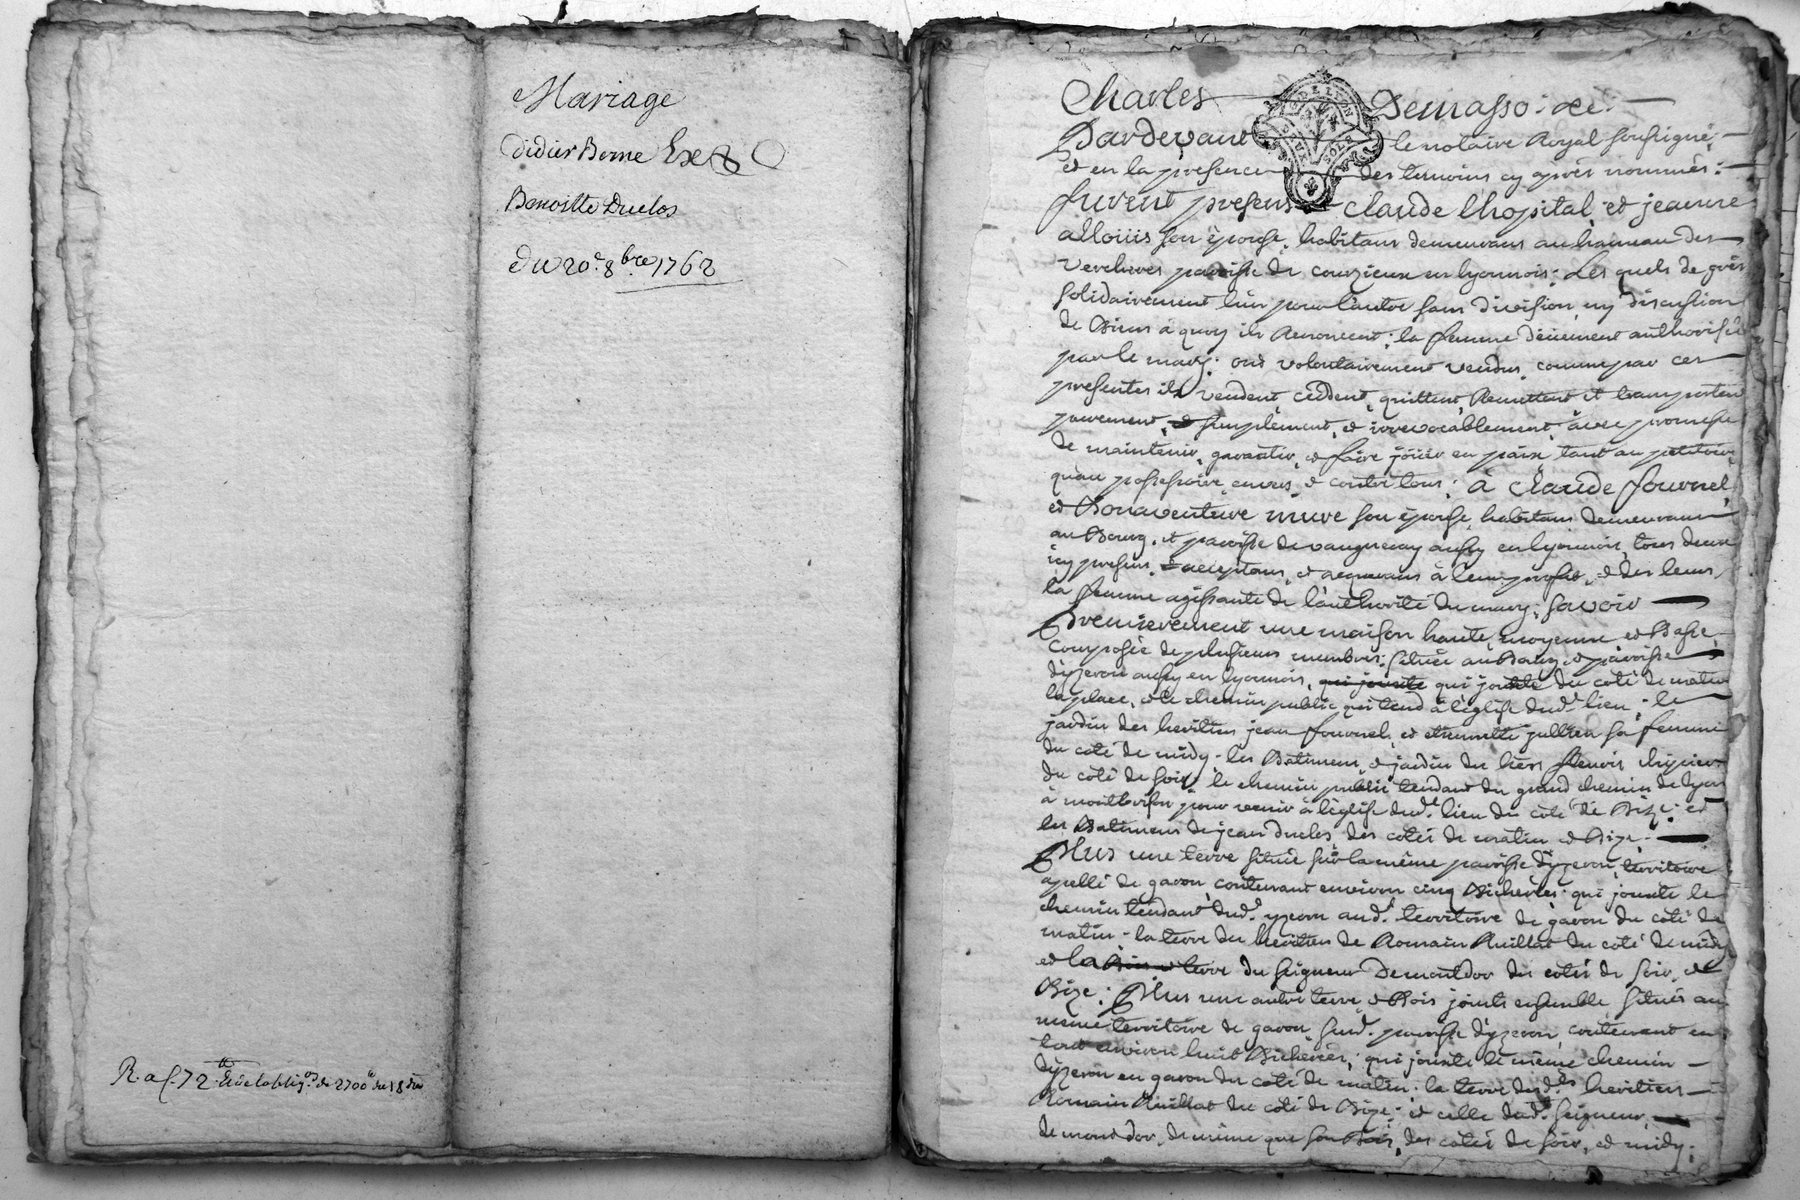 Mariage
Didier Borne Ex
Benoitte Duclos
du 20e 8bre 1762
R. a f. 72
Charles Demasso: &c:
Pardevant le notaire Royal soussigné,
et en la presence des temoins cy aprés nommés:
furent presens Claude Lhopital, et jeanne
allouis son épouse, habitans demeurans au hameau des
Vercheres paroisse de Courzieux en lyonnois. Les quels de gré
solidairement l'un pour l'autre sans division, ny discustion
de Biens à quoy ils Renoncent; la femme düement authorisée
par le mary: ont volontairement vendus, comme par ces
presentes ils vendent cèddent, quittent, Remettent et transportent
purement, et simplement, et irrevocablement, avec promesse
de maintenir, garantir, et faire joüir en paix tant au petitoire
qu'au possessoire, envers, et contre tous: à Claude fournel,
et Bonaventure mure son épouse, habitans demeurans
au Bourg, et paroisse de vaugneray aussy en lyonnois, tous deux
icy presens, et acceptans, et aequerans à leur profit, et des leurs,
la femme agissante de l'authorité du mary: Savoir
Premierement une maison haute, moyenne et Basse,
Composée de plusieurs membres: située au Bourg, et paroisse
dyzeron aussy en lyonnois, qui jouxte qui jouxte du coté de matin
la place, et le chemin public qui tend à l'eglise dud. lieu: le
jardin des heritiers jean fournel, et etiennette jullien sa femme
du coté de midy: les Batimens, et jardin du
du coté de soir, le chemin public tendant du grand chemin de lyon
à montbrison pour venir à l'eglise dud. lieu du coté de Bize: et
les Batimens de jean duclos, des cotés de matin et Bize:
Plus une terre située sur la même paroisse dyzeron, territoire
apellé de gavon contenant environ cinq Bicherées: qui jouxte le
chemin tendant dud. yzeron aud. territoire de gavon du coté de
matin: la terre des heritiers de Romain Ruillat du coté de midy
et la Bois et terre du seigneur Demontdor des cotés de soir, et
Bize: Plus une autre terre et Bois joints ensemble situés au
meme territoire de gavon, sud. paroisse dyzeron, contenant en
tout environ huit Bicherées; qui jouxte le même chemin
dyzeron en gavon du coté de matin: la terre desds heritiers
Romain Ruillat du coté de Bize: et celle dud. seigneur,
de mont dor, de même que son Bois, des cotés de soir, et midy: